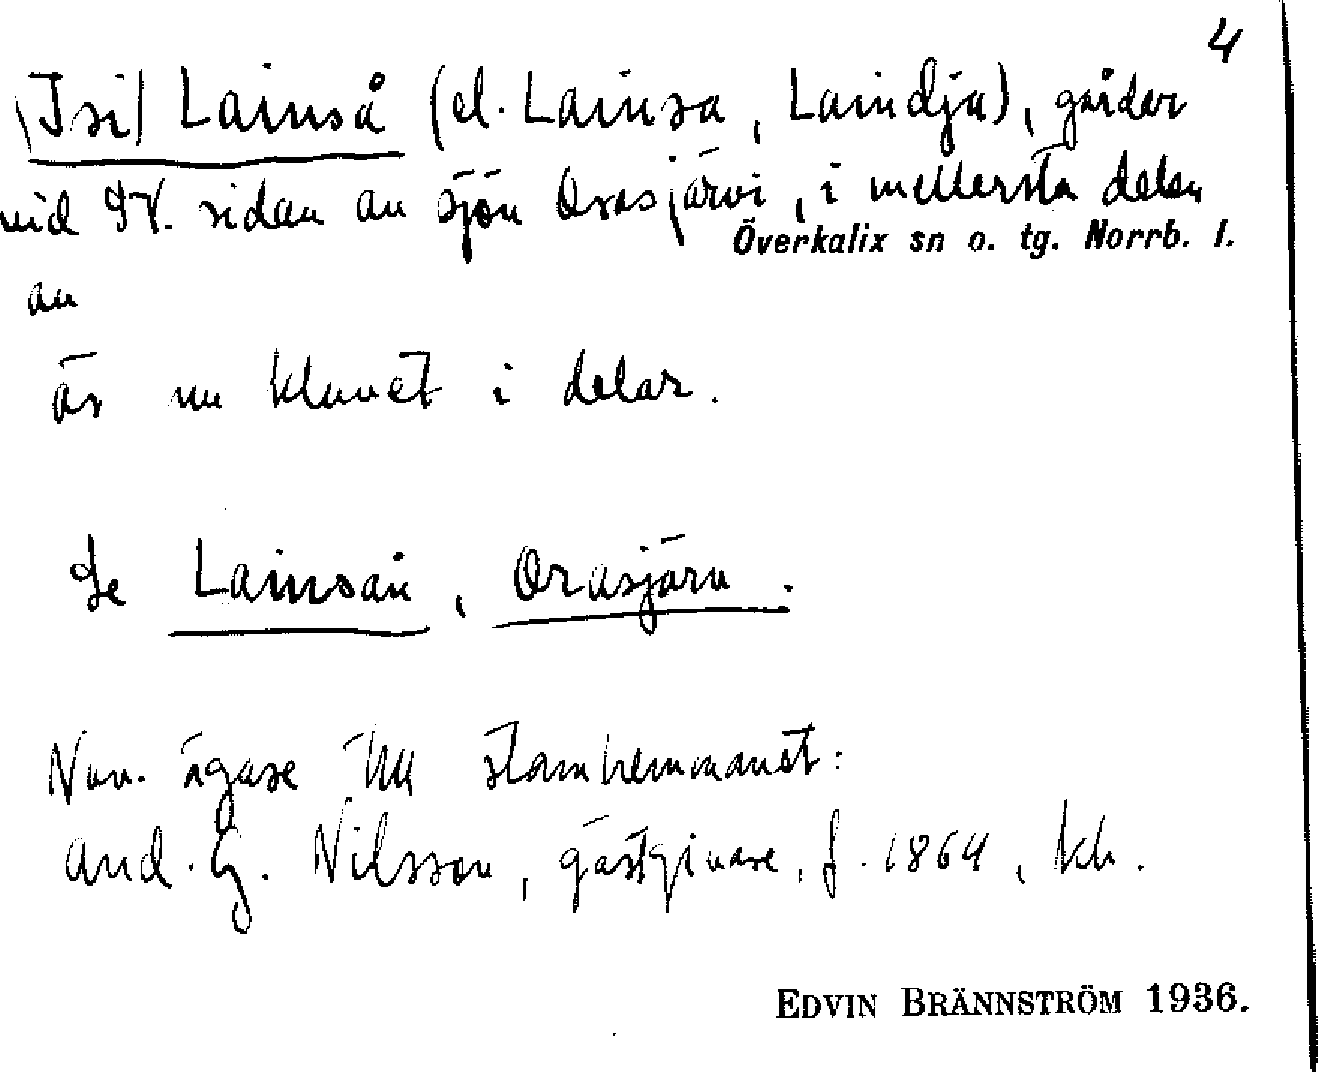 4
(Isi) Lainså (el. Lainsa, Laindja), gårder
vid SV. sidan av sjön Orasjärvi, i mellersta delen
Överkalix sn o. tg. Norrb. l.
av
är nu kluvet i delar.
Se Lainsån, Orasjärv.
Nuv. ägare till stamhemmanet:
And. G. Nilsson, gästgivare, f. 1864, kh.
EDVIN BRÄNNSTRÖM 1936.